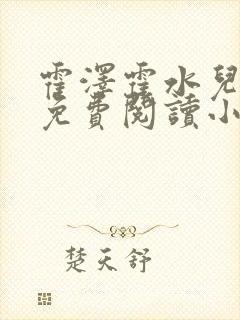 霍澤霍水兒
免費閱讀小
楚天舒